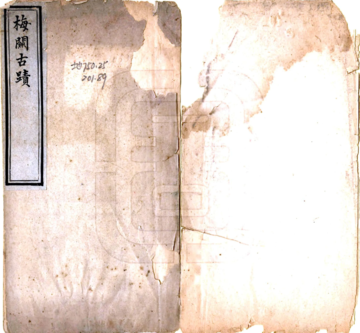 梅關古蹟
地250.25
201.89